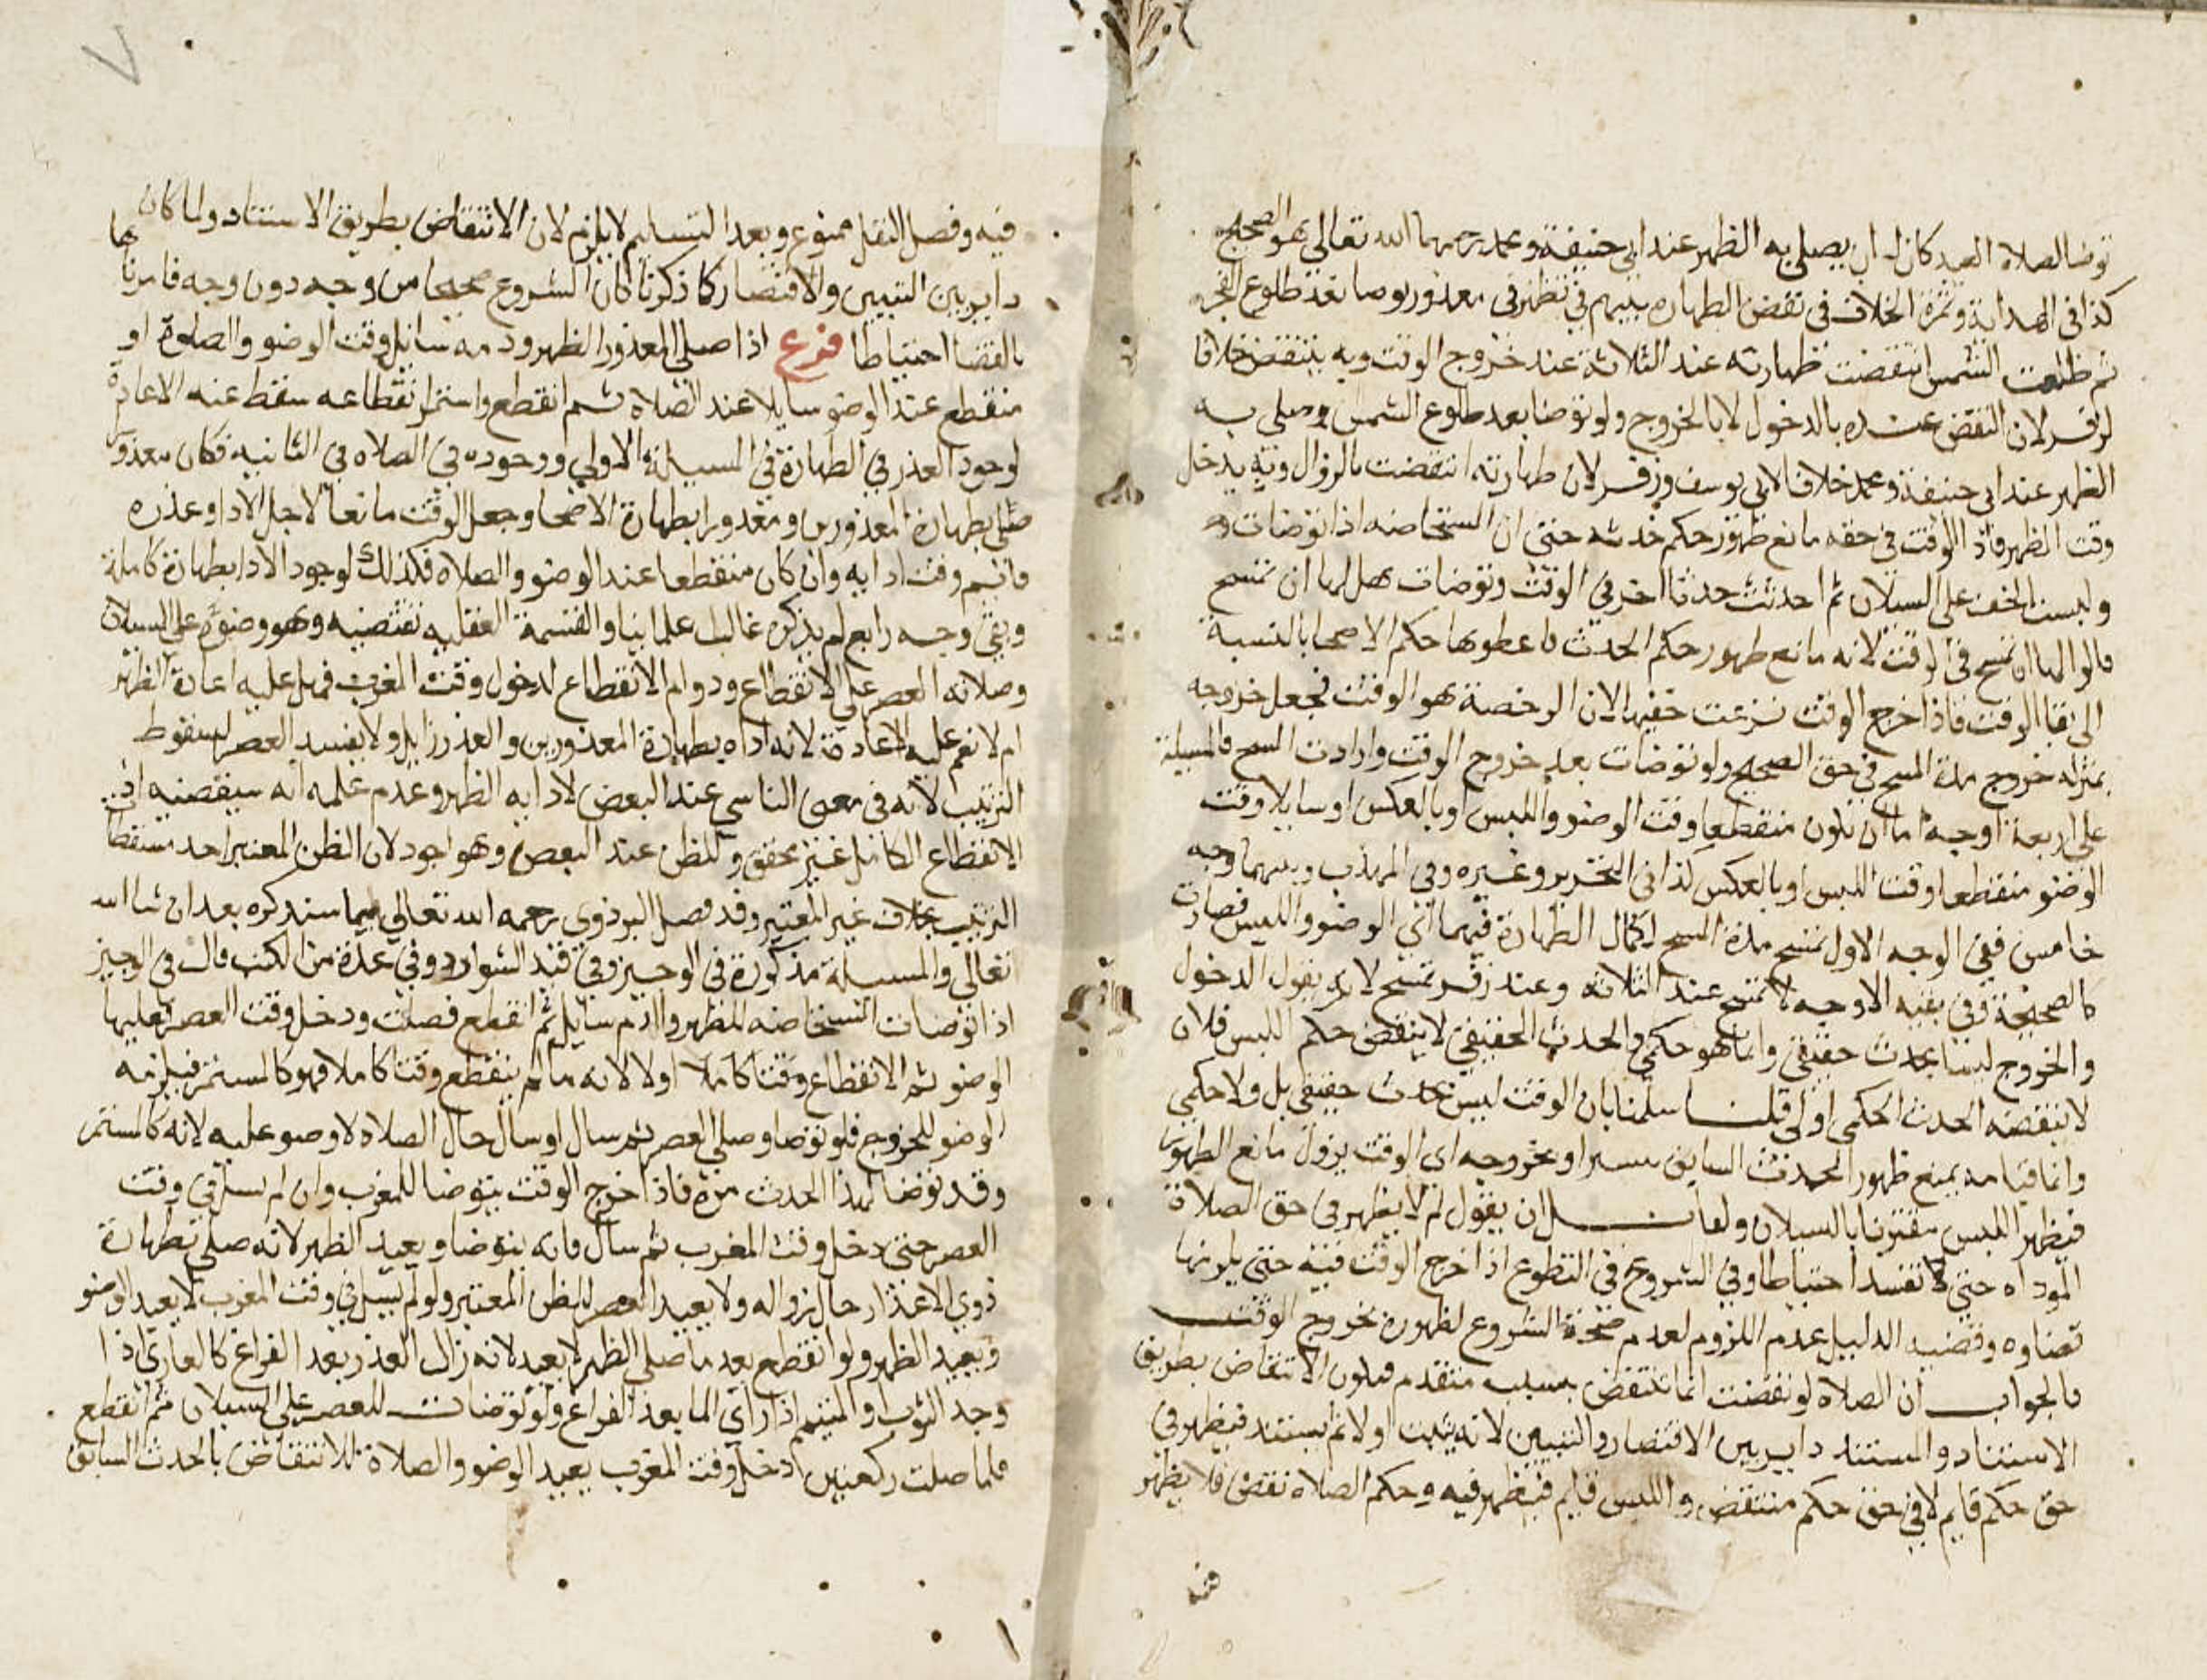 توضا لصلاه العيد كان له ان يصلي به الظهر عند ابي حنيفة ومحمد رحمهما الله تعالى هو الصحيح
كذا في الهداية وثمرة الخلاف في نقض الطهاره بينهم في تظهر في معذور توضا بعد طلوع الفجر
ثم طلعت الشمس انتقضت طهارته عند الثلاثة عند خروج الوقت وبه ينتقض خلافا
لزفر لان النقض عنده بالدخول لا بالخروج ولو توضا بعد طلوع الشمس وصلى به
الظهر عند ابي حنيفة ومحمد خلافا لابي يوسف وزفر لان طهارته انتقضت بالزوال وبه يدخل
وقت الظهر فاذ الوقت في حقه مانع ظهور حكم حدثه حتى ان المستحاضه اذا توضات
ولبست الخف على السيلان ثم احدثت حدثا اخر في الوقت وتوضات هل لها ان تمسح
قالوا لها ان تمسح في الوقت لانه مانع ظهور حكم الحدث فاعطوها حكم الاصحا بالنسبة
الى بقا الوقت فاذا خرج الوقت نزعت خفيها لان الرخصة هو الوقت فجعل خروجه
بمنزله خروج مدة المسح في حق الصحيح ولو توضات بعد خروج الوقت وارادت المسح فالمسيلة
على اربعة اوجه اما ان تكون منقطعا وقت الوضو واللبس او بالعكس او سايلا وقت
الوضو منقطعا وقت اللبس او بالعكس كذا في التحرير وغيره وفي المهذب وبينهما وجه
خامس ففي الوجه الاول تمسح مدة المسح لكمال الطهارة فيهما اي الوضو واللبس فصارت
كالصحيحة وفي بقية الاوجه لا تمسح عند الثلاثه وعند زفر تمسح لانه يقول الدخول
والخروج ليسا بحدث حقيقي وانما هو حكمي والحدث الحقيقي لا ينقض حكم اللبس فلان
لا ينقضه الحدث الحكمي اولى قلنا سلمنا بان الوقت ليس بحدث حقيقي بل ولا حكمي
وانما قيامه يمنع ظهور الحدث السابق بسيرا وبخروجه اي الوقت يزول مانع الظهور
فيظهر اللبس مقترنا بالسيلان ولقائل ان يقول لم لا يظهر في حق الصلاة
الموداه حتى لا تفسد احتياطا وفي الشروع في التطوع اذا خرج الوقت فيه حتى يلزمها
قضاوه وقضيه الدليل عدم اللزوم لعدم صحة الشروع لظهوره بخروج الوقت
فالجواب ان الصلاة لو نقضت انما تنتقض بسبب متقدم فيكون الانتقاض بطريق
الاستناد والمستند داير بين الاقتصار والتبيين لانه يثبت اولا ثم يستند فيظهر في
حق حكم قايم لا في حق حكم منتقض واللبس قايم فيظهر فيه وحكم الصلاة نقض فلا يظهر
فيه
فيه وفصل النفل ممنوع وبعد التسليم لا يلزم لان الانتقاض بطريق الاستناد ولما كان
دايرا بين التبيين والاقتصار كما ذكرنا كان الشروع صحيحا من وجه دون وجه فامرناها
بالقضا احتياطا فرع اذا صلى المعذور الظهر ودمه سائل وقت الوضو والصلوة او
منقطع عند الوضو سايلا عند الصلاة ثم انقطع واستمر انقطاعه سقط عنه الاعادة
لوجود العذر في الطهارة في المسيلة الاولي ووجوده في الصلاه في الثانيه فكان معذورا
صلى بطهارة المعذورين ومعذورا بطهارة الاصحا وجعل الوقت مانعا لاجل الادا وعذره
قايم وقت ادايه وان كان منقطعا عند الوضو والصلاه فكذلك لوجود الادا بطهارة كاملة
وبقى وجه رابع لم يذكره غالب علماينا والقسمة العقليه تقتضيه وهو وضوه على السيلان
وصلاته العصر على الانقطاع ودوام الانقطاع لدخول وقت المغرب فهل عليه اعادة الظهر
ام لا نعم عليه الاعادة لانه اداه بطهارة المعذورين والعذر زايل ولا يفسد العصر لسقوط
الترتيب لانه في معنى الناسي عند البعض لادايه الظهر وعدم علمه انه سيقضيه اذ
الانقطاع الكامل غير محقق وللظن عند البعض وهو اجود لان الظن المعتبر احد مسقطات
الترتيب بخلاف غير المعتبر وقد فصل البزدوى رحمه الله تعالي فيما سنذكره بعد ان شا الله
تعالي والمسيلة مذكورة في الوجيز وفي قيد الشوارد وفي عدة من الكتب قال في الوجيز
اذا توضات المستحاضه للظهر والدم سايل ثم انقطع فصلت ودخل وقت العصر فعليها
الوضو تم الانقطاع وقتا كاملا اولا لانه ما لم ينقطع وقتا كاملا فهو كالمستمر فيلزمه
الوضو للخروج فلو توضا وصلي العصر ثم سال او سال حال الصلاة لا وضو عليه لانه كالمستمر
وقد توضا لهذا الحدث مرة فاذا خرج الوقت يتوضا للمغرب وان لم يسل في وقت
العصر حتى دخل وقت المغرب ثم سال فانه يتوضا ويعيد الظهر لانه صلي بطهارة
ذوي الاعذار حال زواله ولا يعيد العصر للظن المعتبر ولو لم يسل في وقت المغرب لا يعيد الوضو
ويعيد الظهر ولو انقطع بعد ما صلى الظهر لا يعيد لانه زال العذر بعد الفراغ كالعاري اذا
وجد الثوب والمتيمم اذا راى الما بعد الفراغ ولو توضات للعصر على السيلان ثم انقطع
فلما صلت ركعتين دخل وقت المغرب يعيد الوضو والصلاة للانتقاض بالحدث السابق